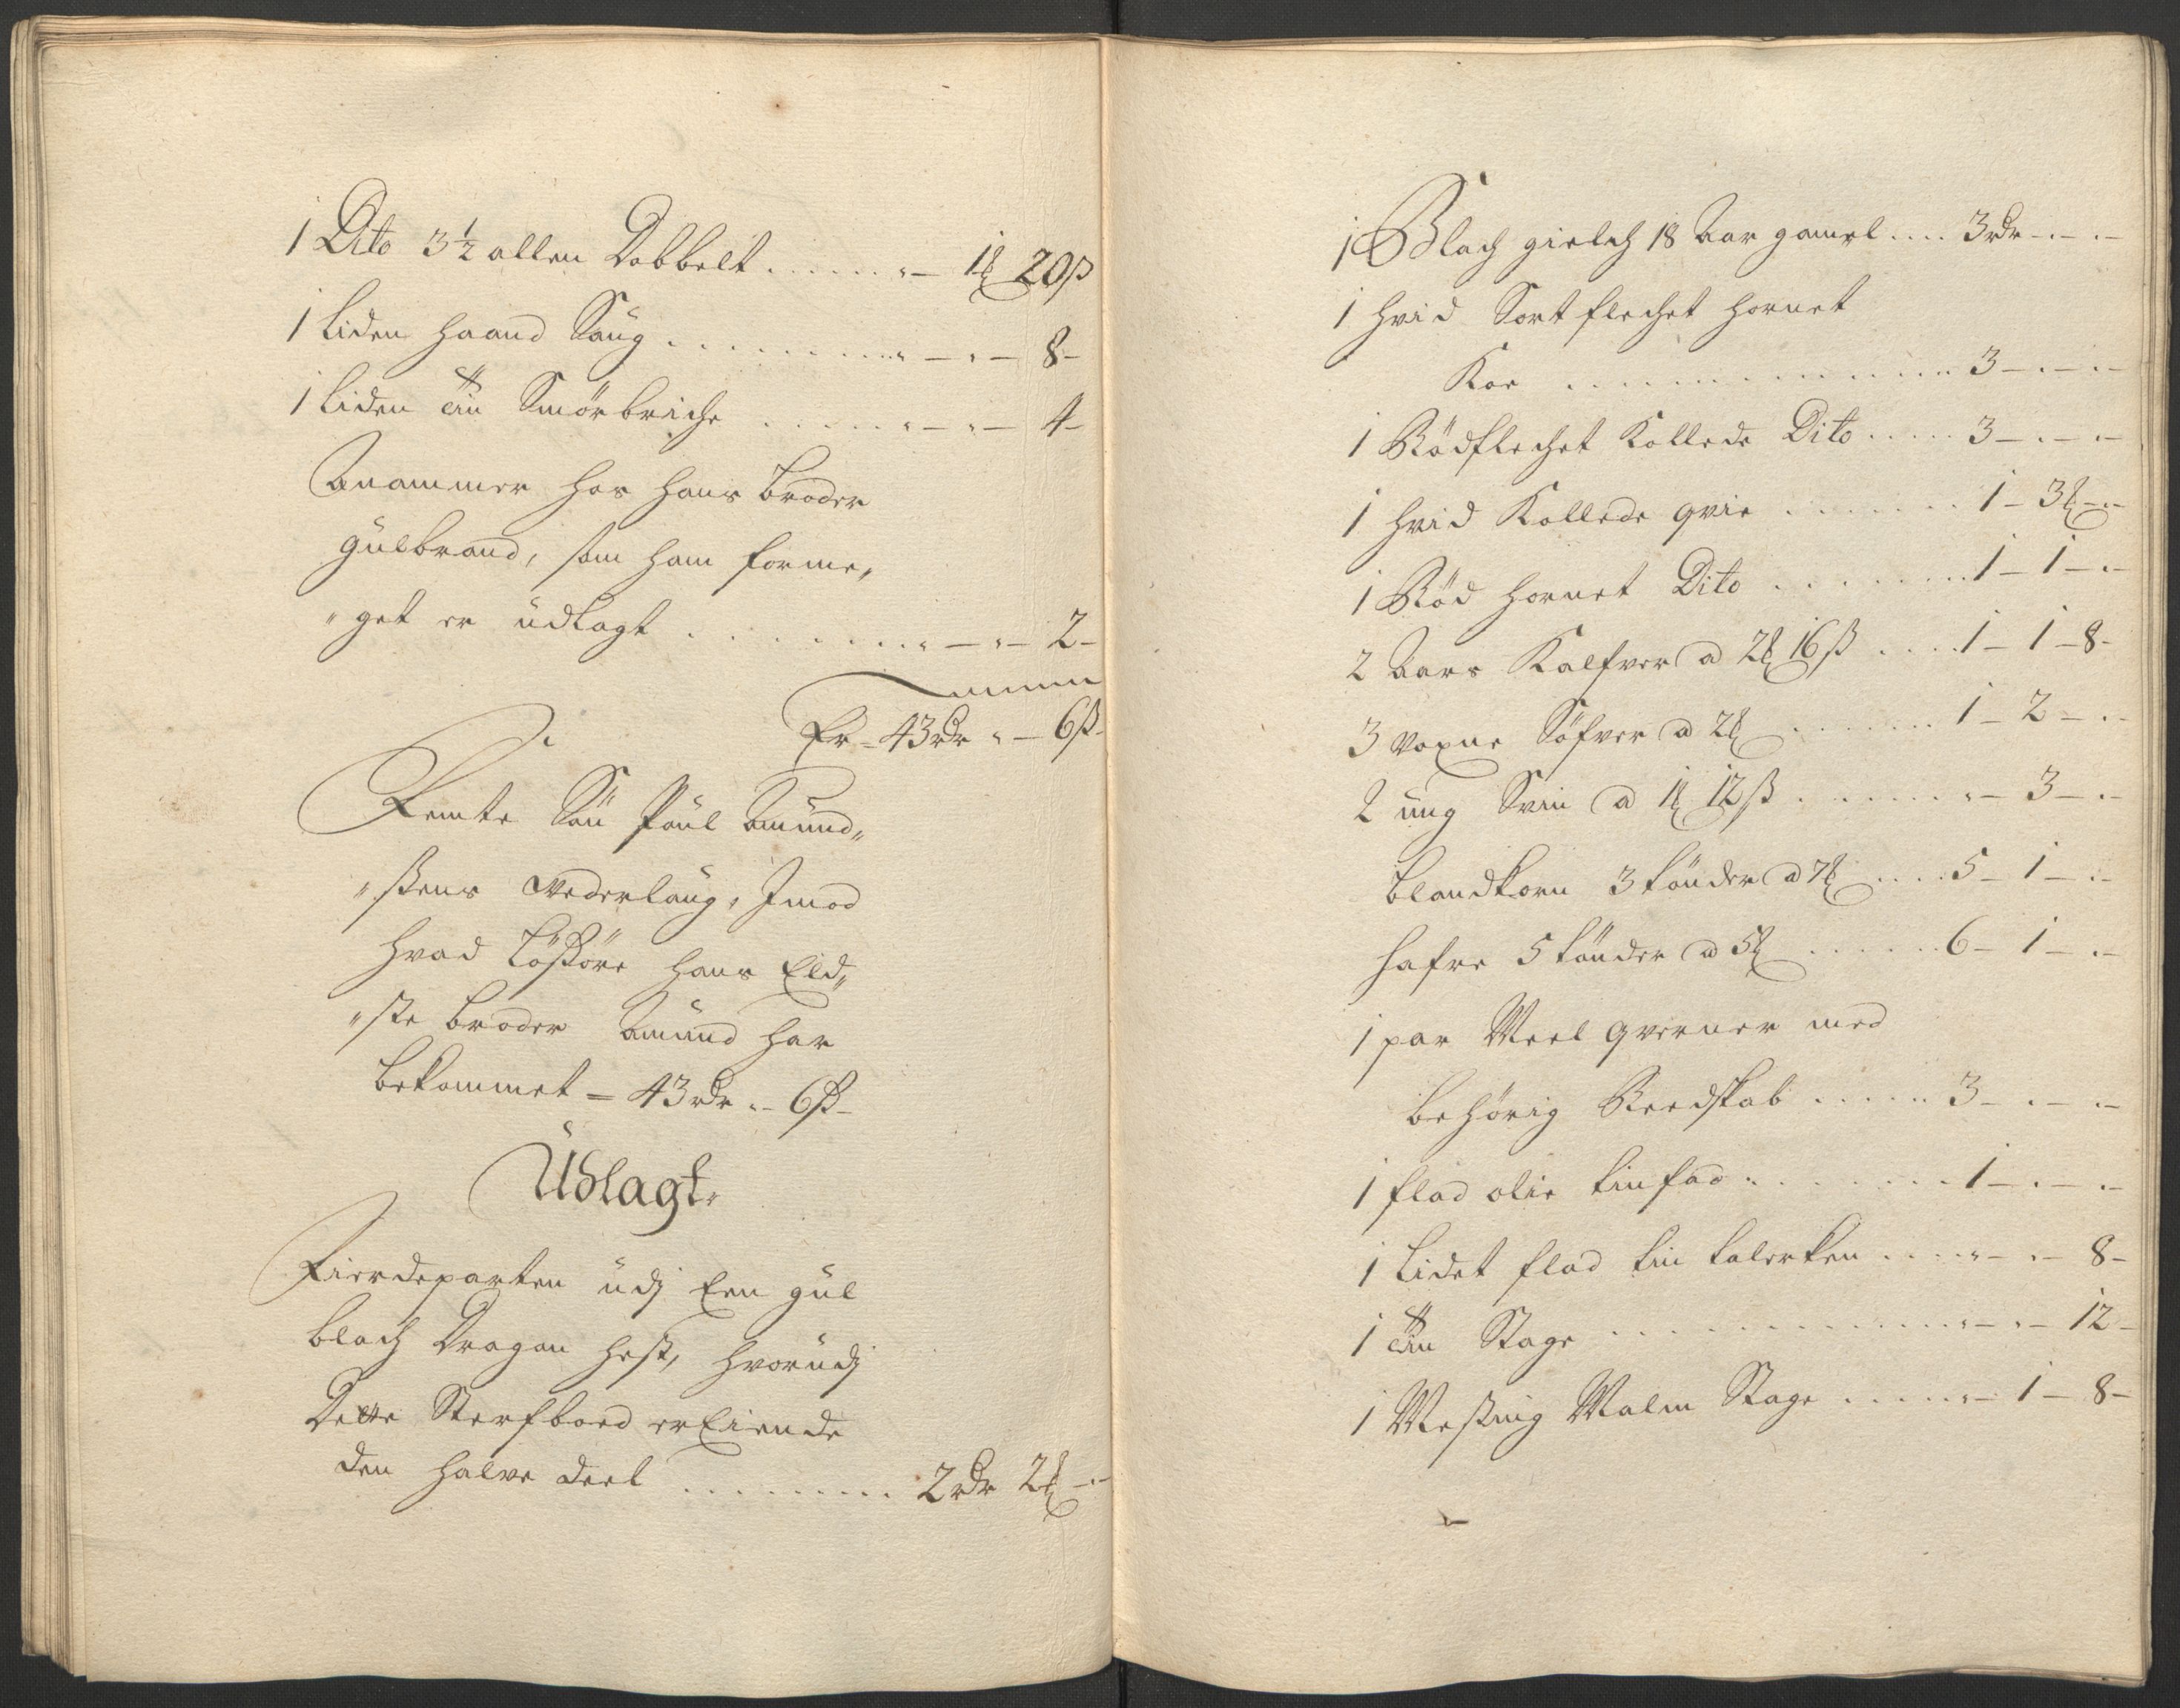 1 Dito 3½ allen Dobbelt . . . . . . „ – 1 ₰ 20 ß
1 liden haand Saug . . . . . . . . . „ – „ – 8 –
1 liden tin Smörbriche . . . . . . „ – „ – 4 –
Anammer hos hans broder
Gulbrand, som ham forme„
„get er udlagt . . . . . . . . . „ – „ – 2 –
Summa
Er – 43 rdr „ – 6 ß –
Femte Sön Poul Amund„
„ßens Vederlaug, Imod
hvad Lösöre hans Eld„
„ste broder Amund har
bekommet = 43 rdr „ – 6 ß –
Udlagt.
Fierdeparten udj Een gul
blach Dragon hest, hvorudj
Dette Sterfboed er Eiende
den halve deel . . . . . . . . . 2 rdr 2 ₰ – „ –
1 Blach gielch 18 Aar gamel . . . . 3 rdr – „ – „ –
1 hvid Sortflechet hornet
Koe . . . . . . . . . . . . . . . 3 – „ – „ –
1 Rödflechet Kollede Dito . . . . . 3 – „ – „ –
1 hvid Kollede qvie . . . . . . . 1 – 3 ₰ – „ –
1 Röd hornet Dito . . . . . . . . . 1 – 1 – „ –
2 Aars Kalfver a 2 ₰ 16 ß . . . . 1 – 1 – 8 –
3 voxne Söfver a 2 ₰ . . . . . . . 1 – 2 – „ –
2 ung Svin a 1 ₰ 12 ß . . . . . . . „ – 3 – „ –
blandkorn 3 tönder a 7 ₰ . . . . 5 – 1 – „ –
hafre 5 tönder a 5 ₰ . . . . . . . 6 – 1 – „ –
1 par Meel qverner med
behörig Reedskab . . . . . . 3 – „ – „ –
1 flad olie tinfad . . . . . . . . 1 – „ – „ –
1 Lidet flad tin talerken . . . . „ – „ – 8 –
1 tin Stage . . . . . . . . . . . . . „ – „ – 12 –
1 Meßing Malm Stage . . . . . „ – 1 – 8 –